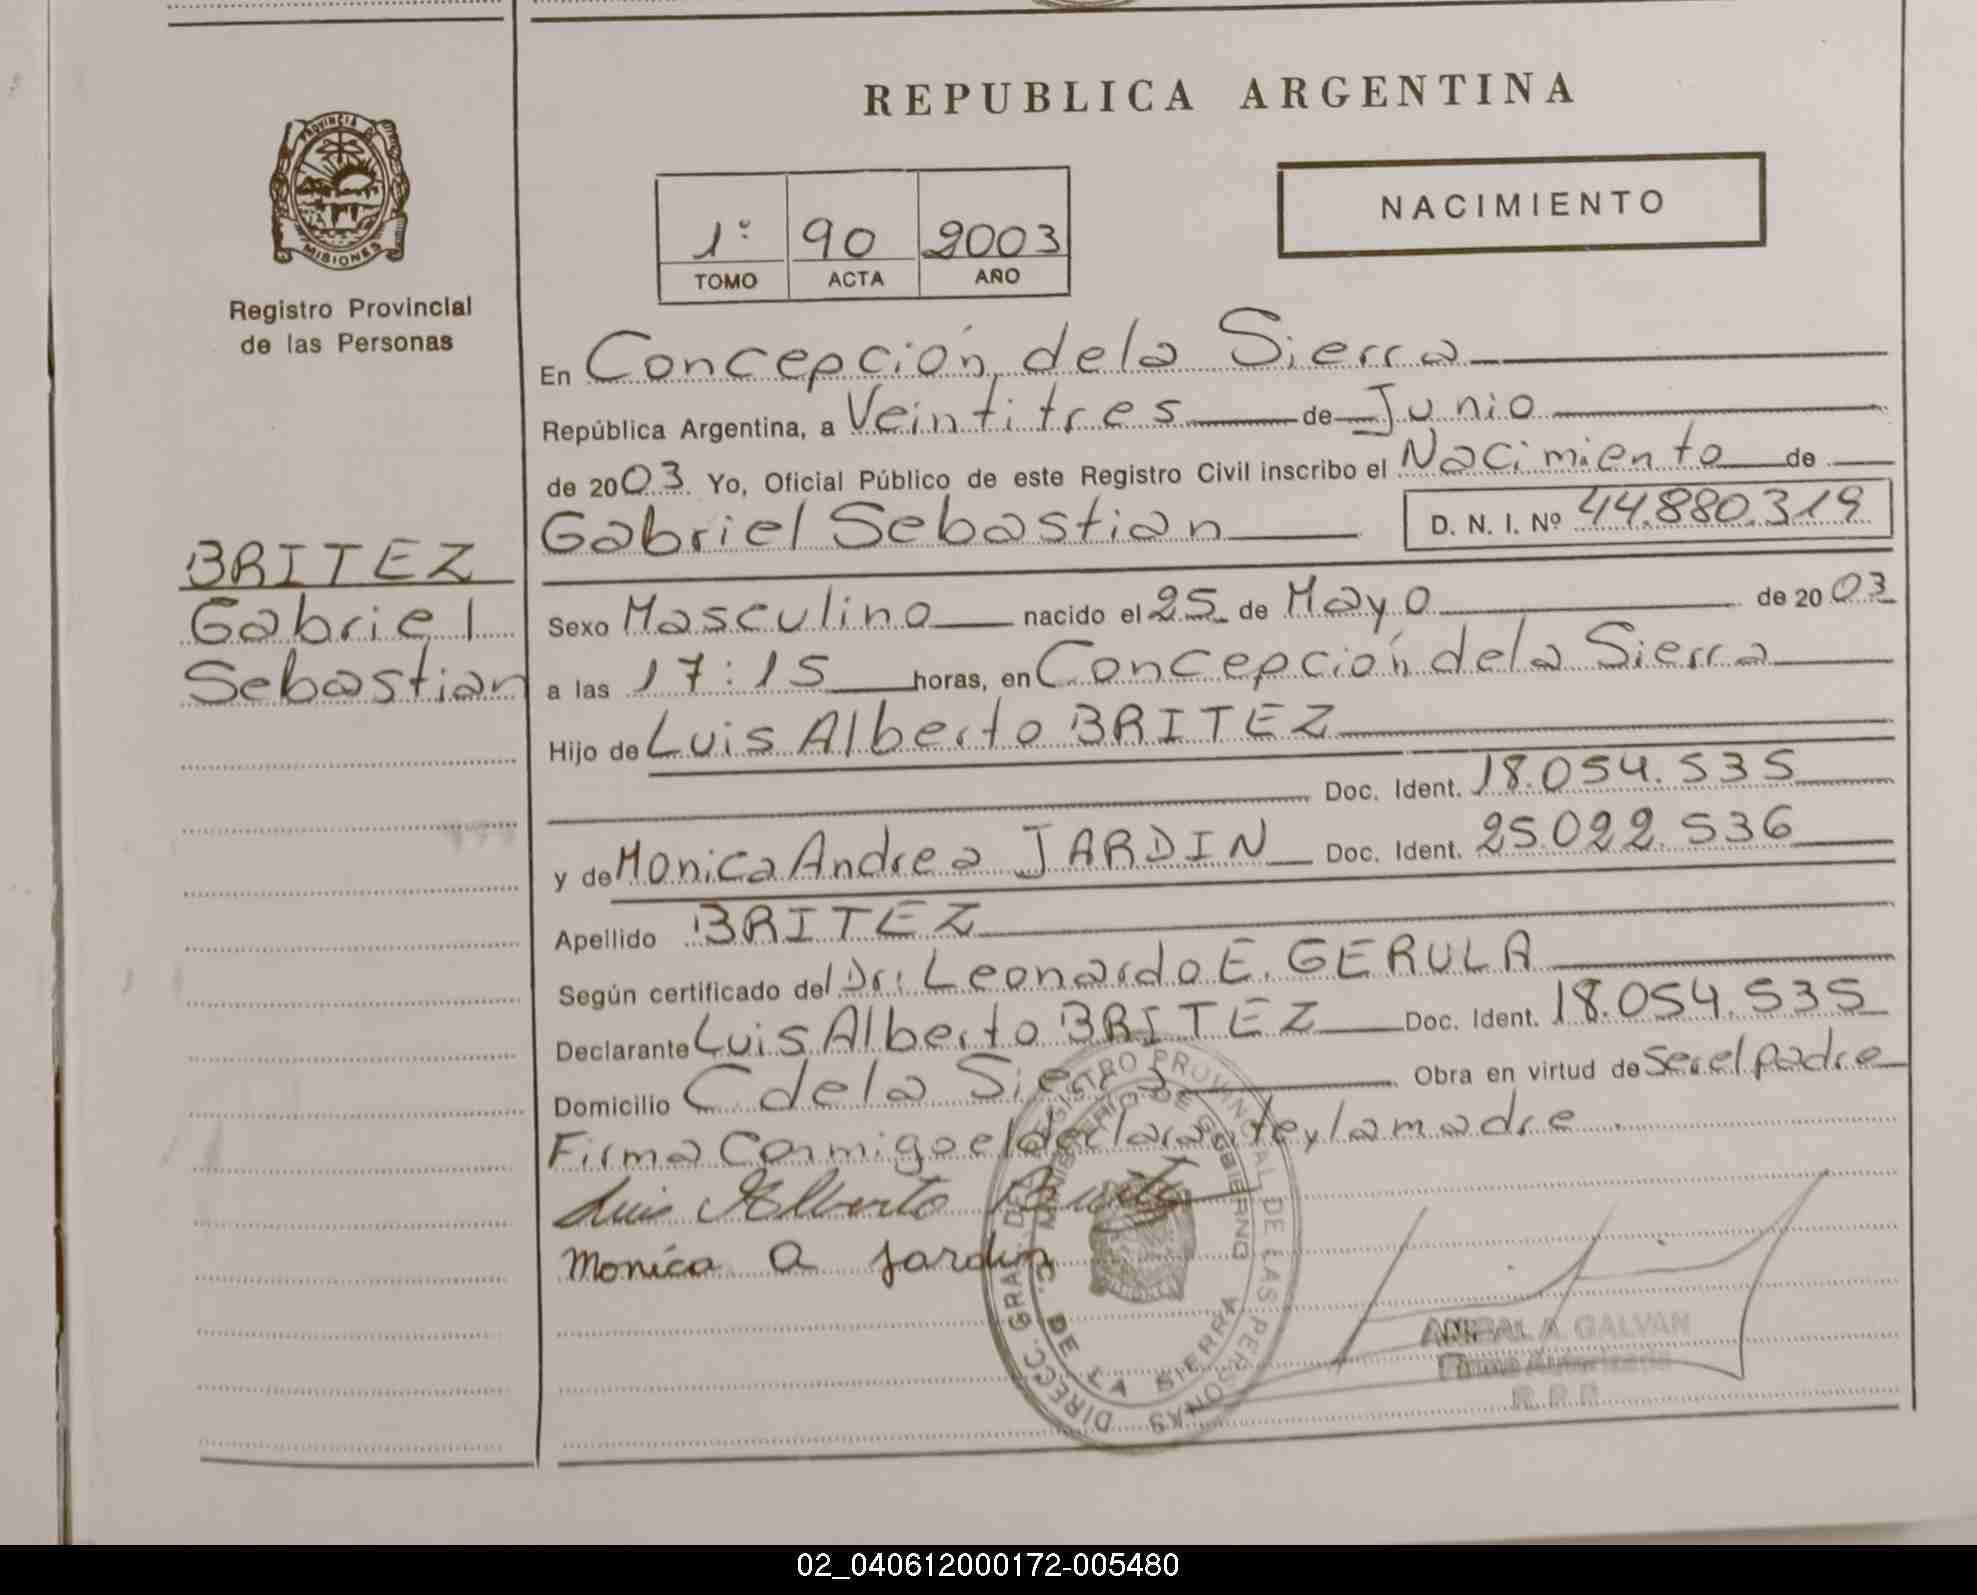 REPUBLICA ARGENTINA
PROVINCIA DE MISIONES
Registro Provincial
de las Personas
NACIMIENTO
1º 90 2003
TOMO ACTA AÑO
En Concepción de la Sierra
República Argentina, a Veintitres de Junio
de 2003 Yo, Oficial Público de este Registro Civil inscribo el Nacimiento de
Gabriel Sebastian D. N. I. Nº 44.880.319
BRITEZ
Gabriel
Sebastian
Sexo Masculino nacido el 25 de Mayo de 2003
a las 17:15 horas, en Concepción de la Sierra
Hijo de Luis Alberto BRITEZ
Doc. Ident. 18.054.535
y de Monica Andrea JARDIN Doc. Ident. 25.022.536
Apellido BRITEZ
Según certificado del Dr. Leonardo E. GERULA
Declarante Luis Alberto BRITEZ Doc. Ident. 18.054.535
Domicilio C de la Sierra Obra en virtud de Ser el padre
Firma Conmigo el declarante y la madre.
Luis Alberto Britez
Monica A Jardin
DIRECC. GRAL. DEL REGISTRO PROVINCIAL DE LAS PERSONAS
MINISTERIO DE GOBIERNO
C. DE LA SIERRA
ANIBAL A. GALVAN
Firma Autorizada
R. P. P.
02_040612000172-005480